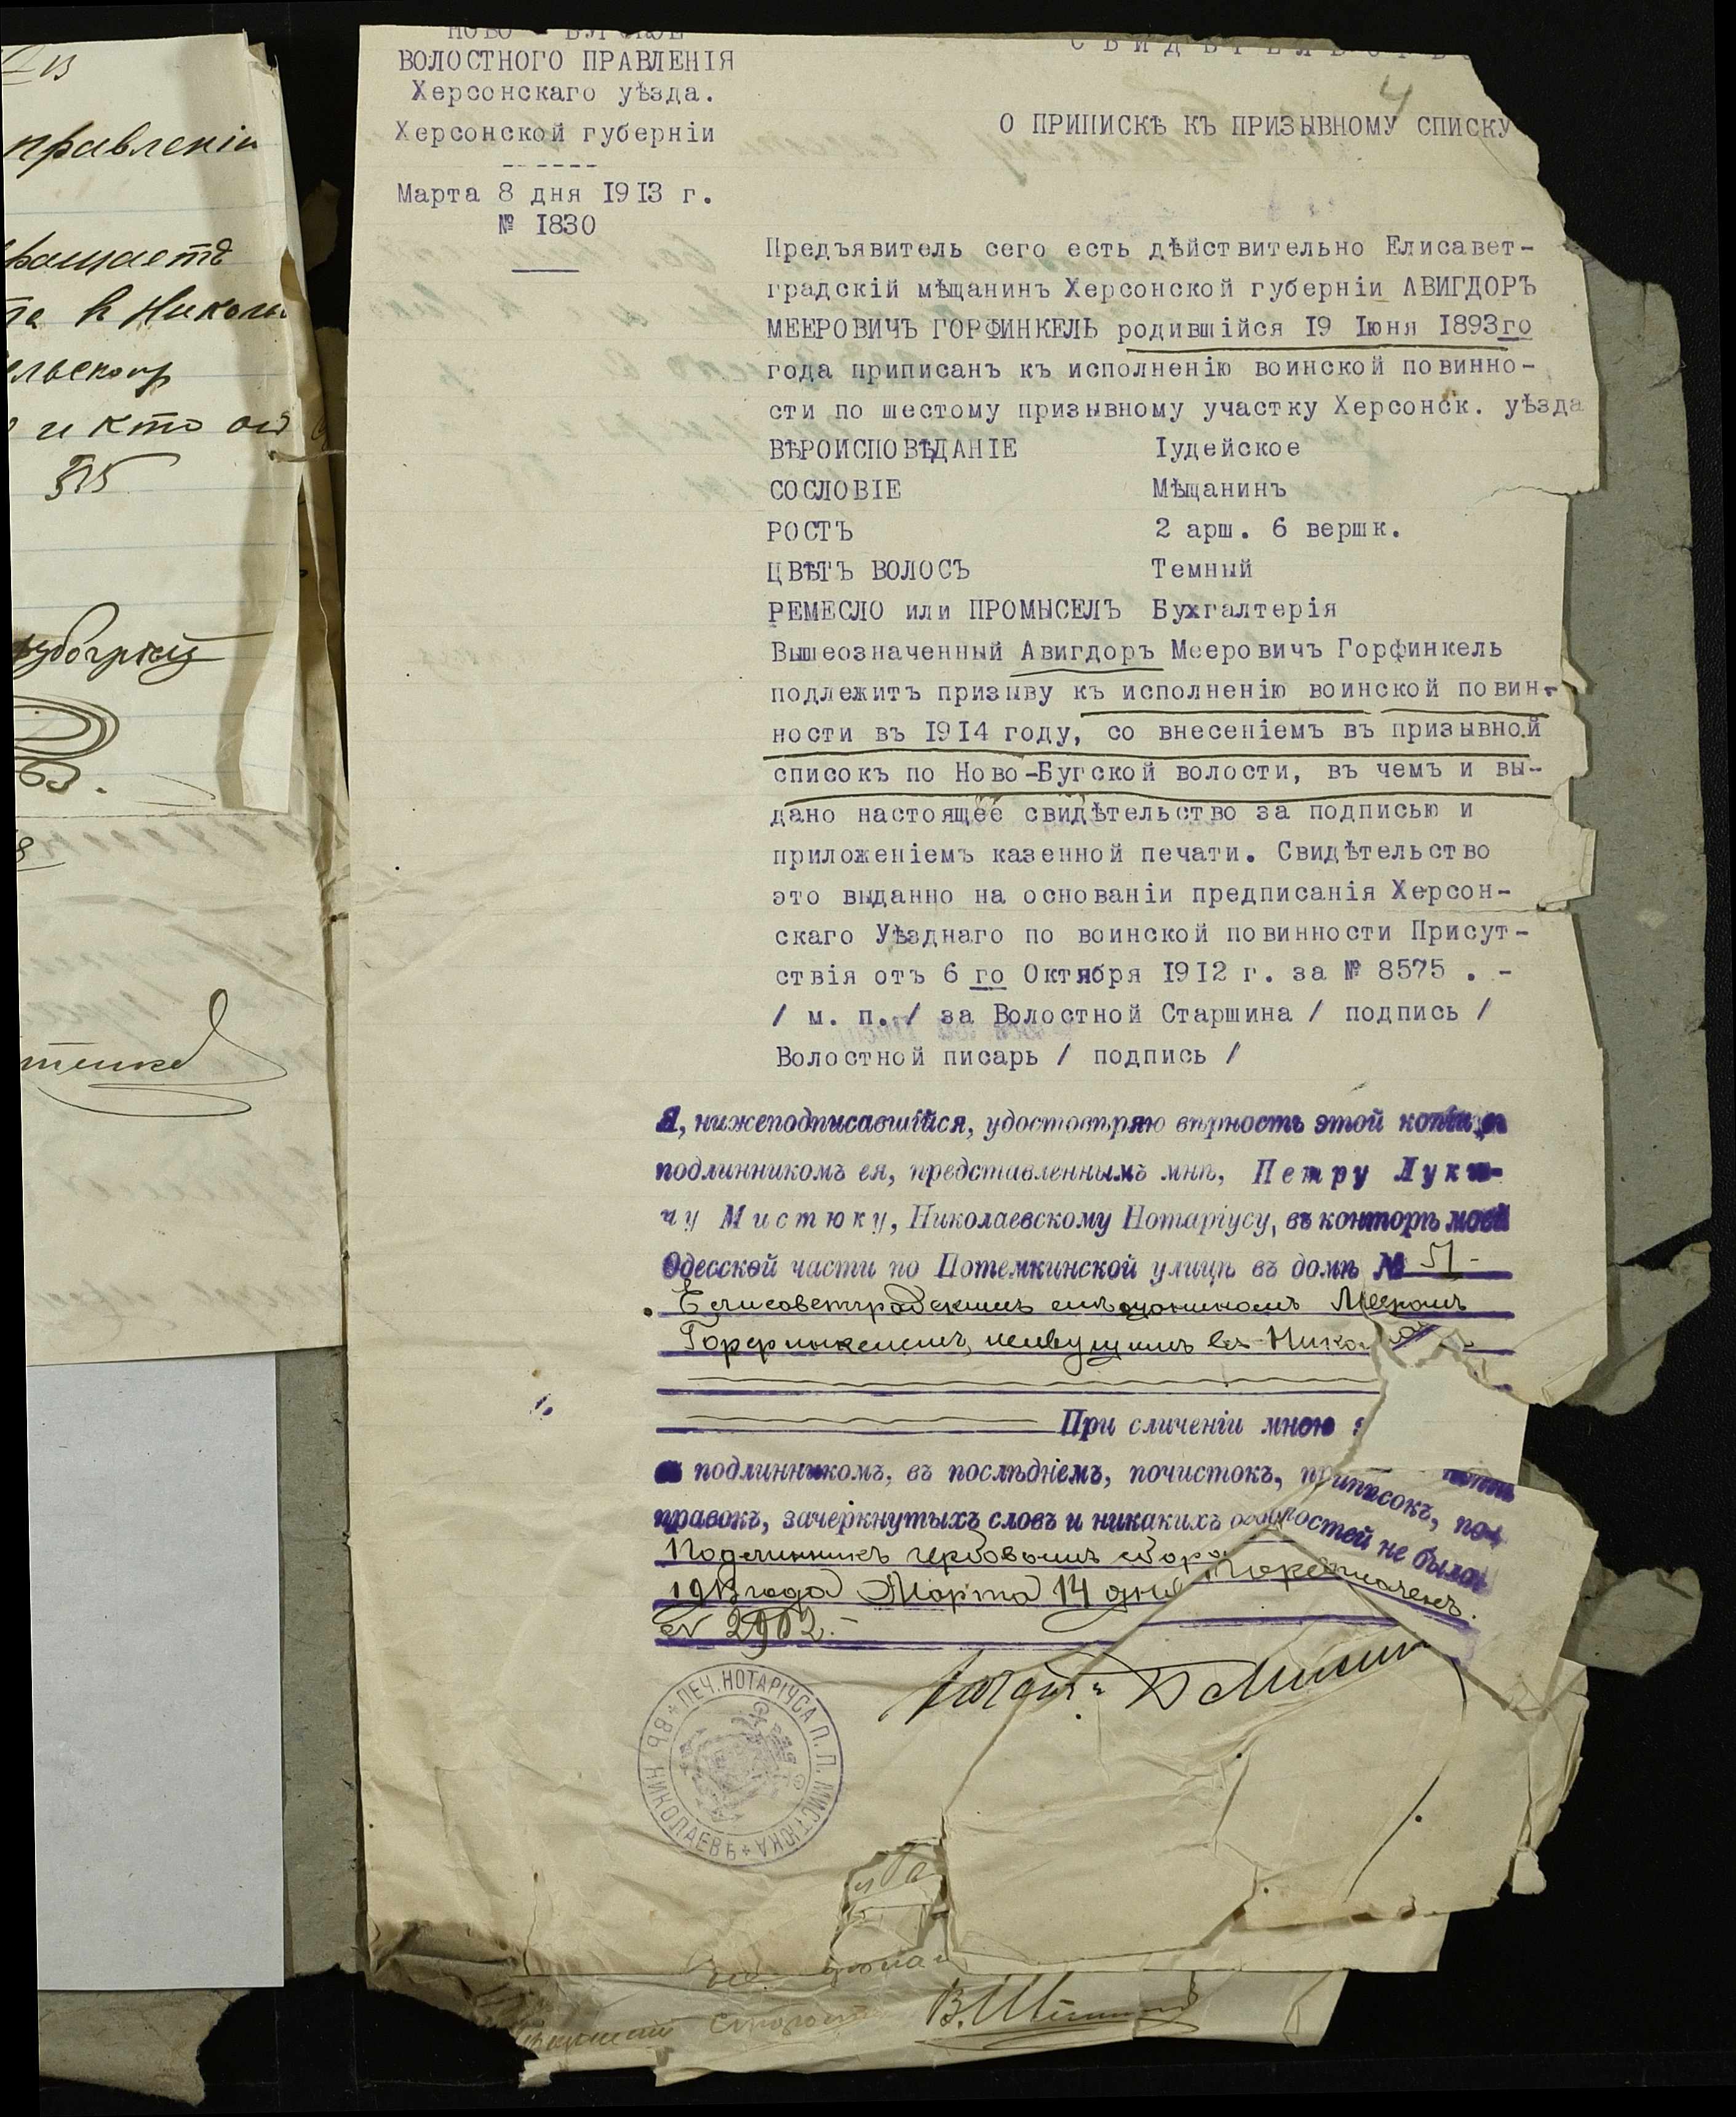 правленіи
и кто он
НОВО - БУГСКОЕ
ВОЛОСТНОГО ПРАВЛЕНІЯ
Херсонскаго уѣзда.
Херсонской губерніи
------
Марта 8 дня 1913 г.
№ 1830
СВИДѢТЕЛЬСТВО
4
О ПРИПИСКѢ КЪ ПРИЗЫВНОМУ СПИСКУ
Предъявитель сего есть дѣйствительно Елисавет-
градскій мѣщанинъ Херсонской губерніи АВИГДОРЪ
МЕЕРОВИЧЪ ГОРФИНКЕЛЬ родившійся 19 Іюня 1893го
года приписанъ къ исполненію воинской повинно-
сти по шестому призывному участку Херсонск. уѣзда
ВѢРОИСПОВѢДАНІЕ Іудейское
СОСЛОВІЕ Мѣщанинъ
РОСТЪ 2 арш. 6 вершк.
ЦВѢТЪ ВОЛОСЪ Темный
РЕМЕСЛО или ПРОМЫСЕЛЪ Бухгалтерія
Вышеозначенный Авигдоръ Мееровичъ Горфинкель
подлежитъ призыву къ исполненію воинской повин-
ности въ 1914 году, со внесеніемъ въ призывной
списокъ по Ново-Бугской волости, въ чемъ и вы-
дано настоящее свидѣтельство за подписью и
приложеніемъ казенной печати. Свидѣтельство
это выданно на основаніи предписанія Херсон-
скаго Уѣзднаго по воинской повинности Присут-
ствія отъ 6 го Октября 1912 г. за № 8575 . -
/ м. п. / за Волостной Старшина / подпись /
Волостной писарь / подпись /
Я, нижеподписавшійся, удостовѣряю вѣрность этой копіи съ
подлинникомъ ея, представленнымъ мнѣ, Петру Луки-
чу Мистюку, Николаевскому Нотаріусу, въ конторѣ моей
Одесской части по Потемкинской улицѣ въ домѣ № 51-
Елисаветградскимъ мѣщаниномъ Мееромъ
Горфинкелемъ, живущимъ въ Никол
При сличеніи мною
съ подлинникомъ, въ послѣднемъ, почистокъ, приписокъ, по-
правокъ, зачеркнутыхъ словъ и никакихъ особностей не было
Подлинникъ гербовымъ сборо
1913 года Марта 14 дня
№ 2902.-
ПЕЧ. НОТАРІУСА П. Л. МИСТЮКА ВЪ НИКОЛАЕВѢ